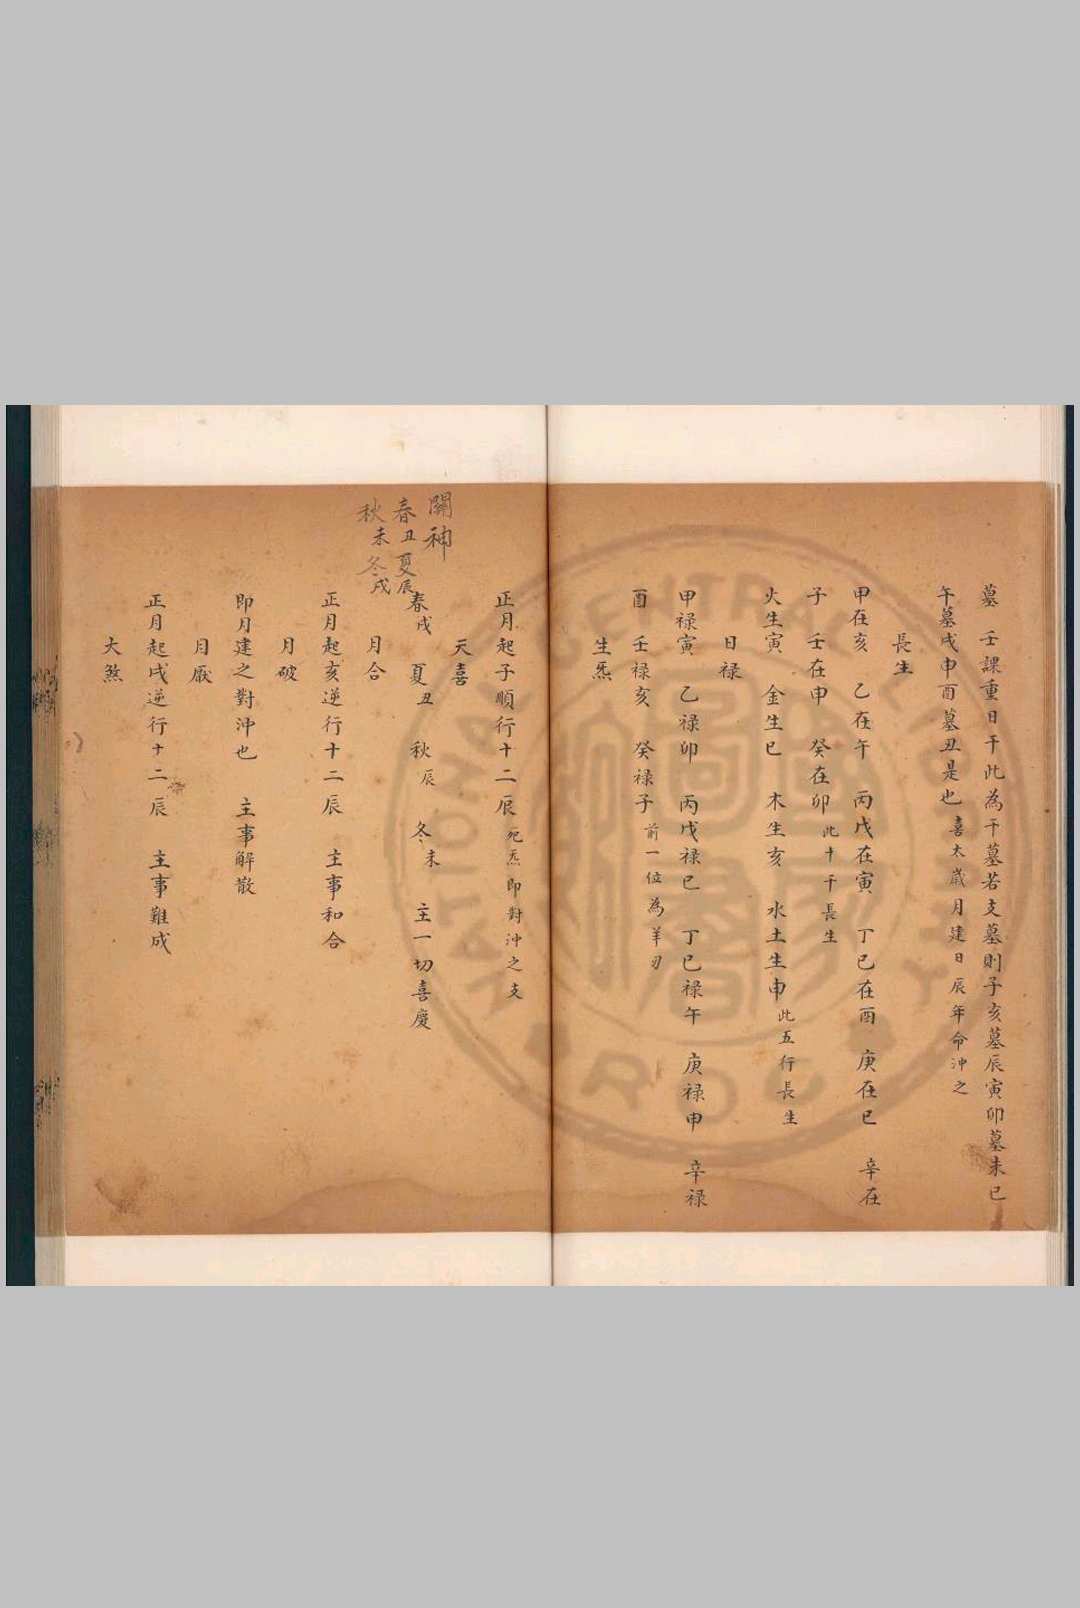 墓　壬課重日干此為干墓若支墓則子亥墓辰寅卯墓未巳
午墓戌申酉墓丑是也喜太歲月建日辰年命沖之
長生
甲在亥　乙在午　丙戊在寅　丁己在酉　庚在巳　辛在
子　壬在申　癸在卯此十干長生
火生寅　金生巳　木生亥　水土生申此五行長生
日禄
甲禄寅　乙禄卯　丙戊禄巳　丁己禄午　庚禄申　辛禄
酉　壬禄亥　癸禄子前一位為羊刃
生炁
正月起子順行十二辰死炁即對沖之支
天喜
春戌　夏丑　秋辰　冬未　主一切喜慶
關神
春丑夏辰
秋未冬戌
月合
正月起亥逆行十二辰　主事和合
月破
即月建之對沖也　主事解散
月厭
正月起戌逆行十二辰　主事難成
大煞
NATIONAL CENTRAL LIBRARY
R.O.C